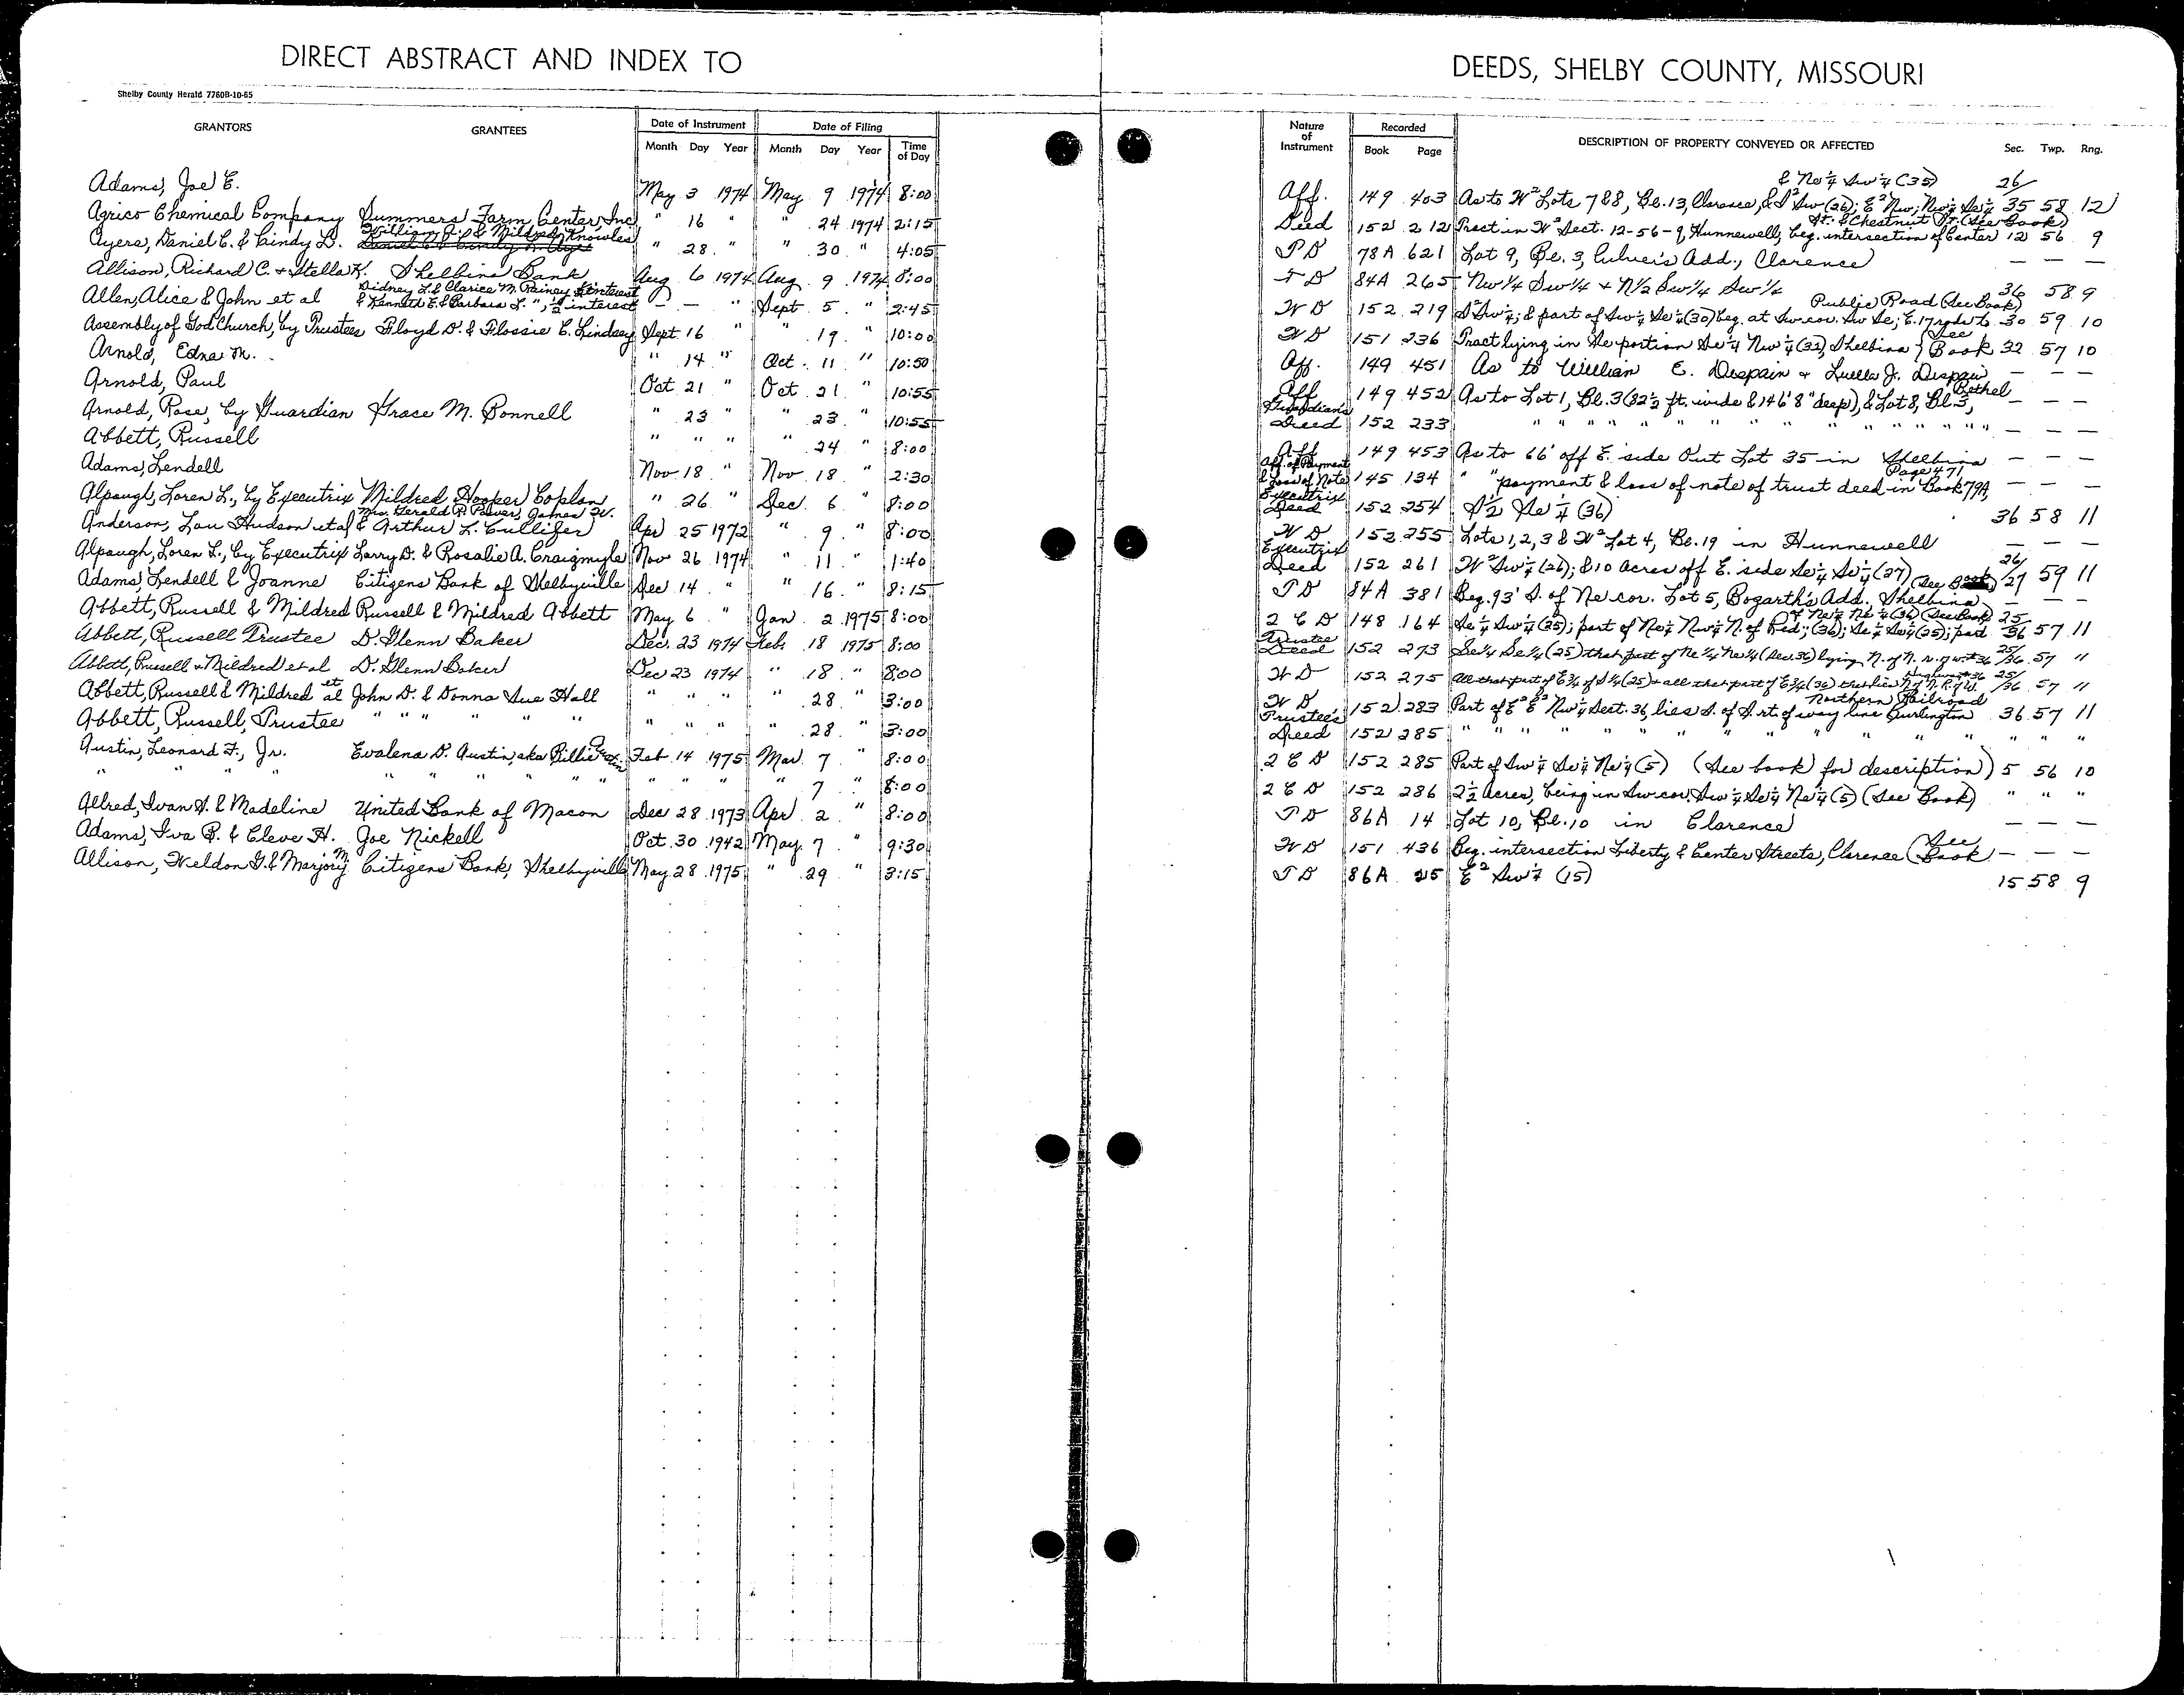 DIRECT ABSTRACT AND INDEX TO
Shelby County Herald 7760B-10-65
GRANTORS GRANTEES Date of Instrument Date of Filing
Month Day Year Month Day Year Time of Day
Adams, Joe E. May 3 1974 May 9 1974 8:00
Agrico Chemical Company Summers Farm Center, Inc " 16 " " 24 1974 2:15
William J. & Mildred Knowles
Ayers, Daniel C. & Cindy L. " 28 " " 30 " 4:05
Allison, Richard C. & Stella K. Shelbina Bank Aug 6 1974 Aug 9 1974 8:00
Sidney L. & Clarice M. Rainey ½ interest
Allen, Alice & John et al & Kenneth E. & Barbara L. ", ½ interest — " Sept 5 " 2:45
Assembly of God Church, by Trustees Floyd D. & Flossie E. Lindsey Sept 16 " " 19 " 10:00
Arnold, Edna M. " 14 " Oct. 11 " 10:50
Arnold, Paul Oct 21 " Oct 21 " 10:55
Arnold, Rose, by Guardian Grace M. Bonnell " 23 " " 23 " 10:55
Abbett, Russell " " " " 24 " 8:00
Adams, Lendell Nov 18 " Nov 18 " 2:30
Alpaugh, Loren L., by Executrix Mildred Hooper Coplan " 26 " Dec. 6 " 8:00
Mrs. Gerald R. Power, James W.
Anderson, Lou Hudson et al & Arthur L. Cullifer Apr 25 1972 " 9 " 8:00
Alpaugh, Loren L., by Executrix Larry D. & Rosalie A. Craigmyle Nov 26 1974 " 11 " 1:40
Adams, Lendell & Joanne Citizens Bank of Shelbyville Dec 14 " " 16 " 8:15
Abbett, Russell & Mildred Russell & Mildred Abbett May 6 " Jan 2 1975 8:00
Abbett, Russell Trustee D. Glenn Baker Dec. 23 1974 Feb 18 1975 8:00
Abbett, Russell & Mildred et al D. Glenn Baker Dec 23 1974 " 18 " 8:00
Abbett, Russell & Mildred et al John D. & Donna Sue Hall " " " " 28 " 3:00
Abbett, Russell, Trustee " " " " " " " " " 28 " 3:00
Austin, Leonard F., Jr. Evalena D. Austin, aka Billie Austin Feb 14 1975 Mar 7 " 8:00
" " " " " " " " " " 7 " 8:00
Allred, Ivan H. & Madeline United Bank of Macon Dec 28 1973 Apr 2 " 8:00
Adams, Iva B. & Cleve H. Joe Nickell Oct 30 1942 May 7 " 9:30
Allison, Weldon G. & Marjory M. Citizens Bank, Shelbyville May 28 1975 " 29 " 3:15
DEEDS, SHELBY COUNTY, MISSOURI
Nature of Instrument Recorded DESCRIPTION OF PROPERTY CONVEYED OR AFFECTED Sec. Twp. Rng.
Book Page
& Ne ¼ Sw ¼ (35) 26/
Aff. 149 403 As to W² Lots 7 & 8, Bl. 13, Clarence, & S² Sw (26); E² Nw; Nw ¼ Se ¼ 35 58 12
St. & Chestnut St. (See Book)
Deed 152 212 Tract in W² Sect. 12-56-9, Hunnewell, beg. intersection of Center 12 56 9
T D 78A 621 Lot 9, Bl. 3, Culver's Add., Clarence — — —
T D 84A 265 Nw 1/4 Sw 1/4 + N 1/2 Sw 1/4 Sw 1/4 36 58 9
Public Road (See Book)
W D 152 219 S² Sw ¼; & part of Sw ¼ Se ¼ (30) beg. at Sw cor. Sw Se; E. 17 rods to 30 59 10
W D 151 236 Tract lying in Se portion Se ¼ Nw ¼ (32), Shelbina (See Book 32 57 10
Aff. 149 451 As to William E. Despain & Luella J. Despain — — —
Bethel
Aff 149 452 As to Lot 1, Bl. 3 (82½ ft. wide & 146' 8" deep), & Lot 8, Bl. 3, — — —
Guardian's Deed 152 233 " " " " " " " " " " " " " — — —
Aff 149 453 As to 66' off E. side Out Lot 35 in Shelbina — — —
Page 471
Aff. of Payment & Loss of Note 145 134 " " payment & loss of note of trust deed in Book 79A, — — —
Executrix Deed 152 254 S ½ Se ¼ (36) 36 58 11
W D 152 255 Lots 1, 2, 3 & W² Lot 4, Bl. 19 in Hunnewell — — —
Executrix Deed 152 261 W² Sw ¼ (26); & 10 acres off E. side Se ¼ Se ¼ (27) (See Book) 26/27 59 11
T D 84A 381 Beg. 93' S. of Ne cor. Lot 5, Bogarth's Add. Shelbina — — —
of Ne ¼ Ne ¼ (36) (See Book) 25
2 C D 148 164 Se ¼ Sw ¼ (25); part of Ne ¼ Nw ¼ N. of Rd; (36); Se ¼ Se ¼ (25); part 36 57 11
Trustee Deed 152 273 Se 1/4 Se 1/4 (25) that part of Ne 1/4 Ne 1/4 (Sec. 36) lying N. of N. r. of w. #36 25/36 57 "
W D 152 275 All that part of E 3/4 of S 1/4 (25) + all that part of E 3/4 (36) that lies N. of N. R. of W. 25/36 57 "
Northern Railroad
W D 152 283 Part of E² E² Nw ¼ Sect. 36, lies S. of S. rt. of way line Burlington 36 57 11
Trustee's Deed 152 285 " " " " " " " " " " " " "
2 C D 152 285 Part of Sw ¼ Se ¼ Ne ¼ (5) (See book for description) 5 56 10
2 C D 152 286 2½ Acres, being in Sw cor. Sw ¼ Se ¼ Ne ¼ (5) (See Book) " " "
T D 86A 14 Lot 10, Bl. 10 in Clarence — — —
W D 151 436 Beg. intersection Liberty & Center Streets, Clarence (See Book — — —
T D 86A 25 E² Sw ¼ (15) 15 58 9